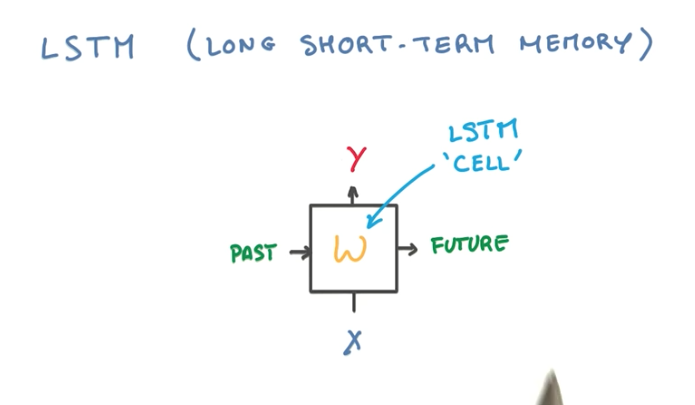 LSTM (LONG SHORT-TERM MEMORY)
LSTM
'CELL'
Y
PAST
W
FUTURE
X